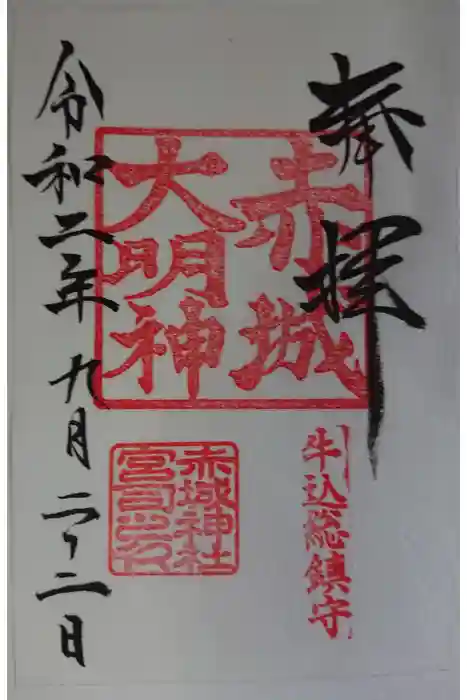 奉拝
牛込総鎮守
赤城
大明神
赤城神社
宮司之印
令和二年九月二十二日